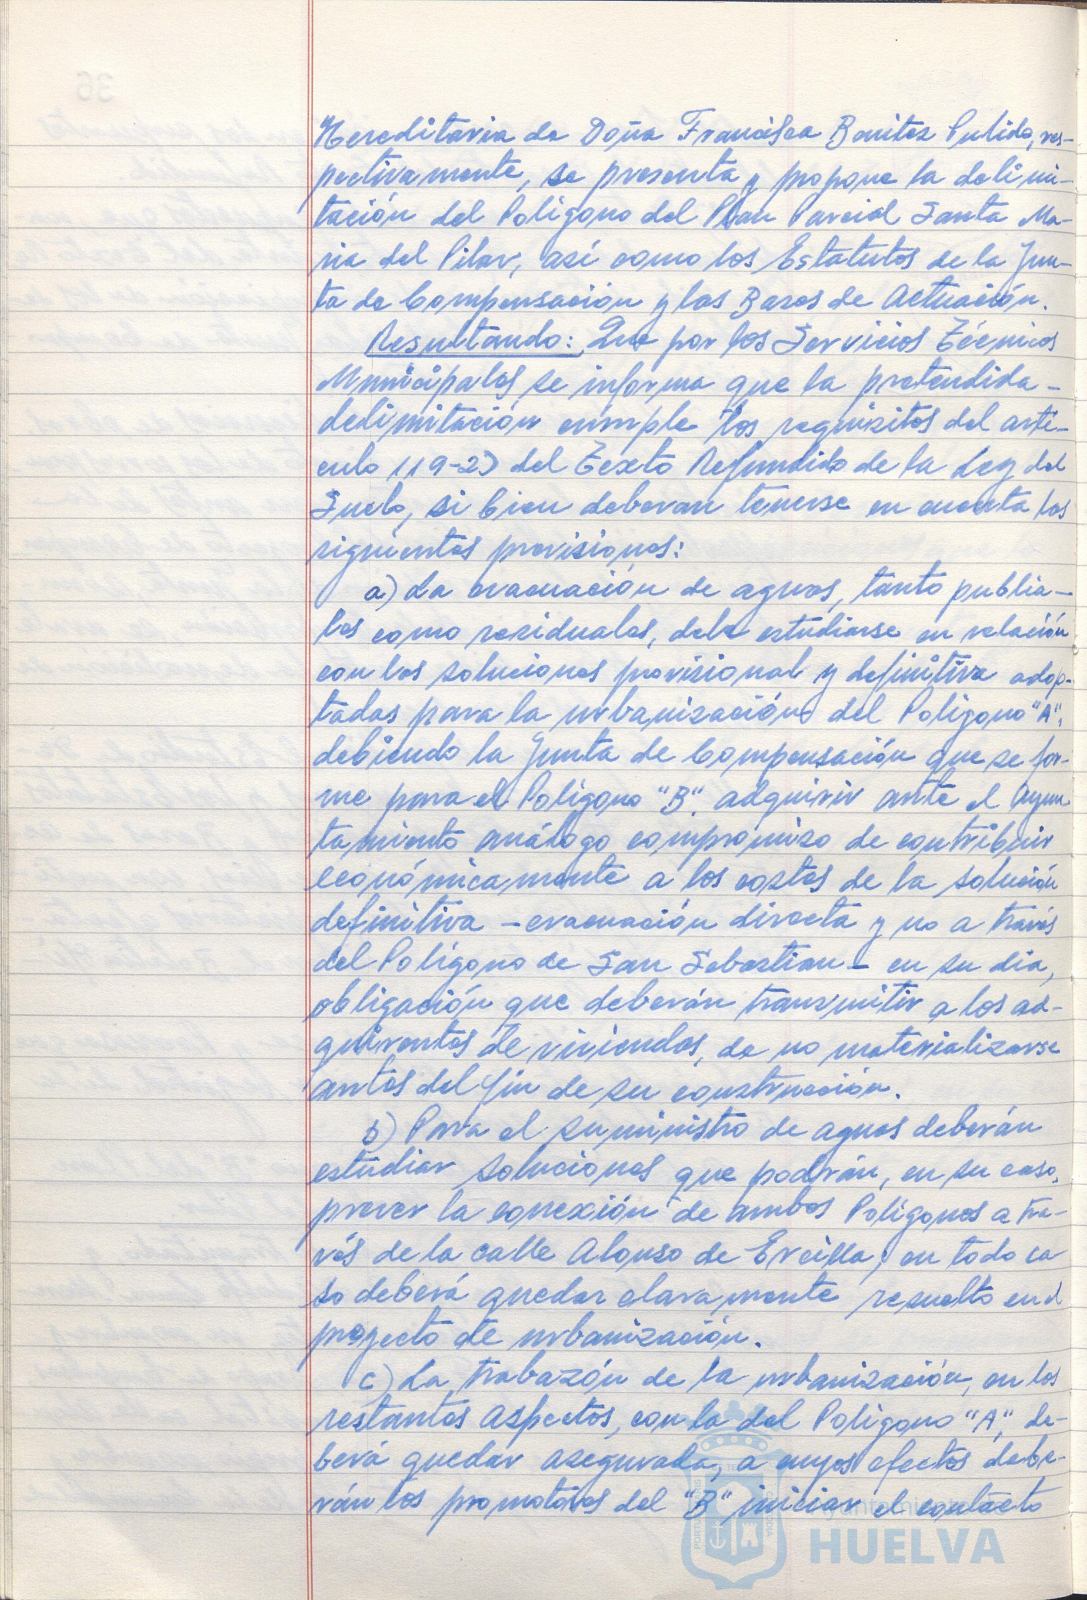 Hereditaria de Doña Francisca Benitez Pulido, res-
pectivamente, se presenta y propone la delimi-
tación del Polígono del Plan Parcial Santa Ma-
ria del Pilar, así como los Estatutos de la Jun-
ta de Compensación y las Bases de Actuación.
Resultando: Que por los Servicios Técnicos
Municipales se informa que la pretendida -
delimitación cumple los requisitos del artí-
culo 119-2) del Texto Refundido de la Ley del
Suelo, si bien deberan tenerse en cuenta las
siguientes previsiones:
a) La evacuación de aguas, tanto publia-
les como residuales, debe estudiarse en relación
con las soluciones provisional y definitiva adop-
tadas para la urbanización del Polígono "A",
debiendo la Junta de Compensación que se for-
me para el Polígono "B", adquirir ante el Ayun
tamiento análogo compromiso de contribuir
económicamente a los costes de la solución
definitiva - evacuación directa y no a través
del Polígono de San Sebastian - en su dia,
obligación que deberán transmitir a los ad-
quirentes de viviendas, de no materializarse
antes del fin de su construcción.
b) Para el suministro de aguas deberán
estudiar soluciones que podrán, en su caso,
prever la conexión de ambos Polígonos a tra-
vés de la calle Alonso de Ercilla; en todo ca
so deberá quedar claramente resuelto en el
proyecto de urbanización.
c) La trabazón de la urbanización, en los
restantes aspectos, con la del Polígono "A", de-
berá quedar asegurada, a cuyos efectos debe-
rán los promotores del "B" iniciar el contacto
Ayuntamiento
HUELVA